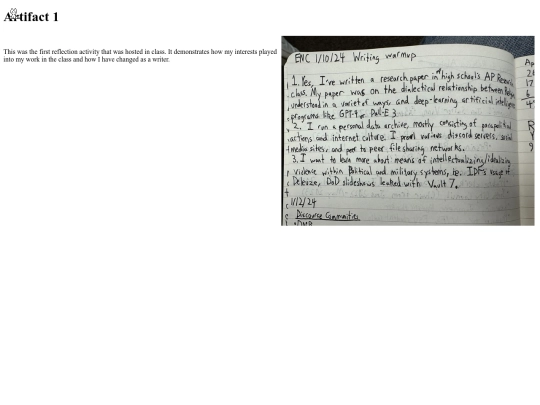 Artifact 1
This was the first reflection activity that was hosted in class. It demonstrates how my interests played
into my work in the class and how I have changed as a writer.
ENC 1/10/24 Writing warmup
1. Yes, I've written a research paper in my high school's AP Research
class. My paper was on the dialectical relationship between
understand in a variety of ways, and deep-learning artificial intelligence
programs like GPT-4 or Dall-E 3
2. I run a personal data archive, mostly consisting of parapolitical
actions and internet culture. I prowl various discord servers, social
media sites, and peer to peer file sharing networks.
3. I want to learn more about means of intellectualizing/idealizing
violence within political and military systems, ie. IDF's usage of
Deleuze, DoD slideshows leaked with Vault 7.
1/12/24
Discourse Communities